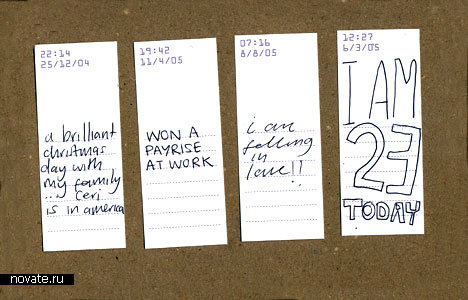 22:14
25/12/04
a brilliant
christmas
day with
my family
... Ceri
is in america
19:42
11/4/05
WON A
PAYRISE
AT WORK
07:16
8/8/05
i am
falling
in
love!!
12:27
6/3/05
I AM
23
TODAY
novate.ru